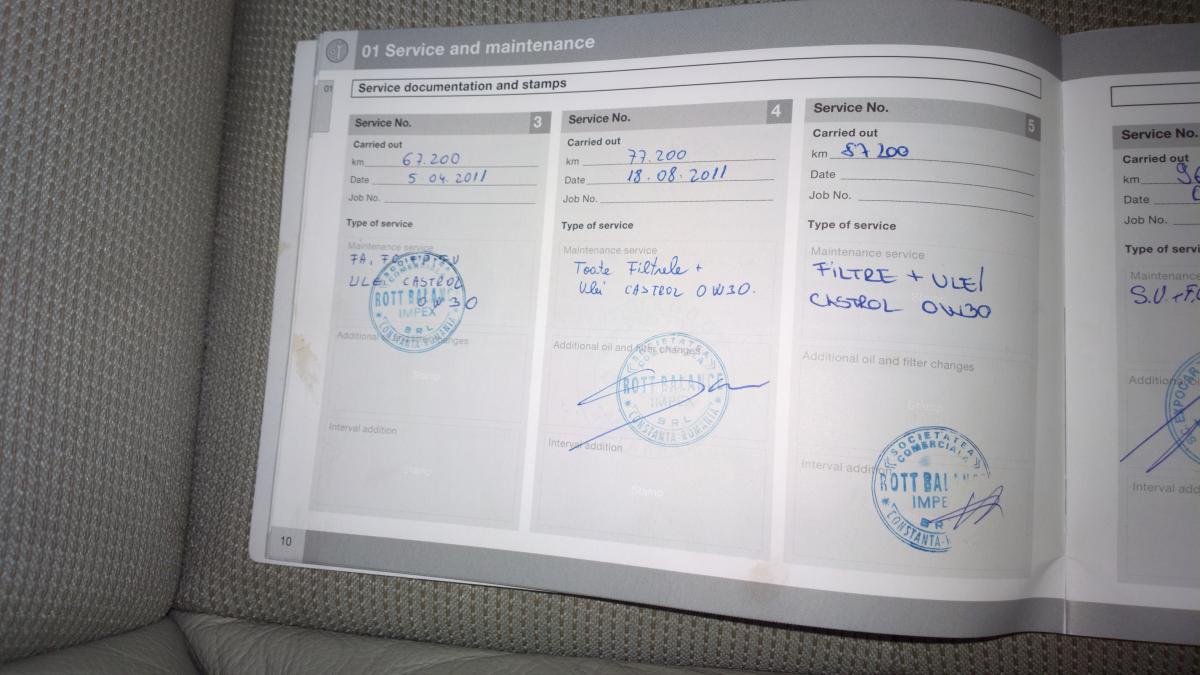 01 Service and maintenance
01
Service documentation and stamps
Service No. 3
Carried out
km 67.200
Date 5 04.2011
Job No.
Type of service
Maintenance service
ULEI CASTROL
0W30
SOCIETATEA
COMERCIALA
ROTT BALANCE
IMPEX
SRL
CONSTANTA-ROMANIA
Additional oil and filter changes
Stamp
Interval addition
Stamp
Service No. 4
Carried out
km 77.200
Date 18.08.2011
Job No.
Type of service
Maintenance service
Toate Filtrele +
Ulei CASTROL 0W30.
Additional oil and filter changes
SOCIETATEA
COMERCIALA
ROTT BALANCE
IMPEX
SRL
CONSTANTA-ROMANIA
Interval addition
Stamp
Service No. 5
Carried out
km 87 200
Date
Job No.
Type of service
Maintenance service
FILTRE + ULEI
CASTROL 0W30
Additional oil and filter changes
Stamp
Interval addition
SOCIETATEA
COMERCIALA
ROTT BALAN
IMPE
SR
CONSTANTA-
Service No.
Carried out
km 96
Date
Job No.
Type of servi
Maintenance
S.U + F.
Additional
EXPOCAR
Interval add
10